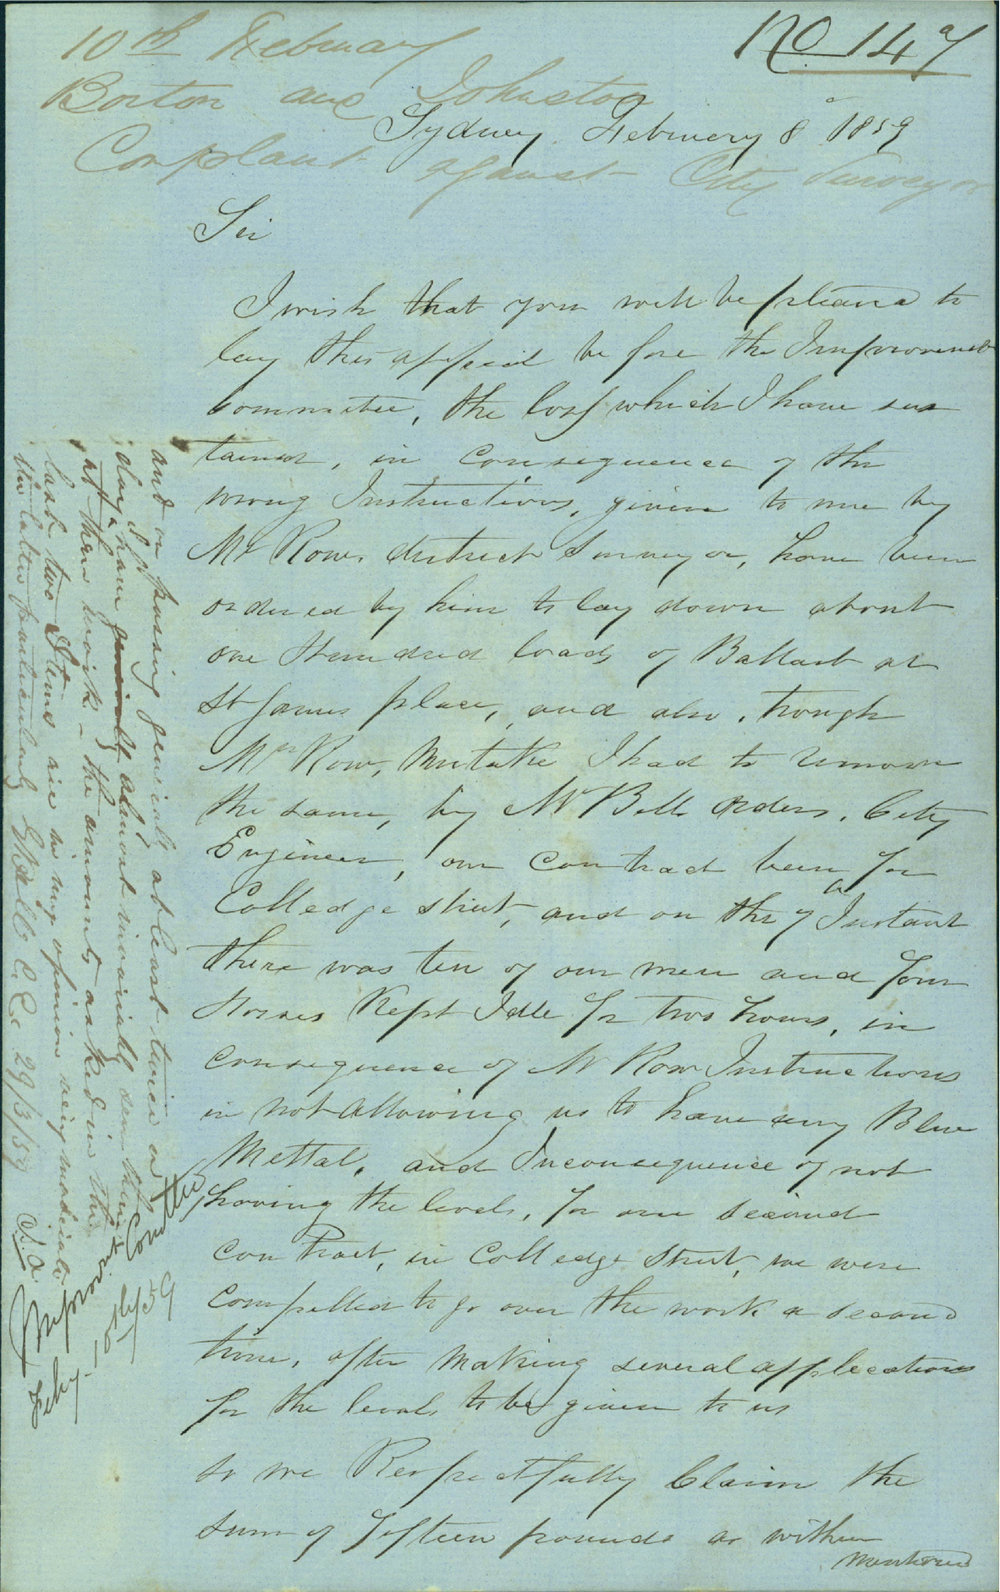 No 147
10th February
Borton and Johnston
Complaint against City Surveyor
Sydney February 8 1859
Sir
I wish that you will be pleased to
lay this appeal be fore the Improvement
Committee, the loss which I have sus
tained, in Consequence of the
wrong Instructions, given to me by
Mr Row. district Surveyor, have been
ordered by him to lay down about
one Hundred loads of Ballast at
St James place, and also, trough
Mr Row, Mistake I had to remove
the same, by Mr Bell orders, City
Engineer, our Contract been for
Colledge street, and on the 7 Instant
there was ten of our men and four
Horses Kept Idle for two hours, in
Consequence of Mr Row Instructions
in not Allowing us to have any Blue
Mettal, and Inconsequence of not
having the levels, for our second
Contract, in Colledge Street, we were
Compelled to go over the work a second
time, after Making several applications
for the levels to be given to us
so we Respectfully Claim the
sum of fifteen pounds as within
mentioned
and on passing generally at least twice a
day I have generally almost invariably seen them
at there work – the amounts asked in the
last two Items are in my opinion very moderate
the latter particularly EBell C.E. 29/3/59
Improvmt Comittee
Feby. 10th/59